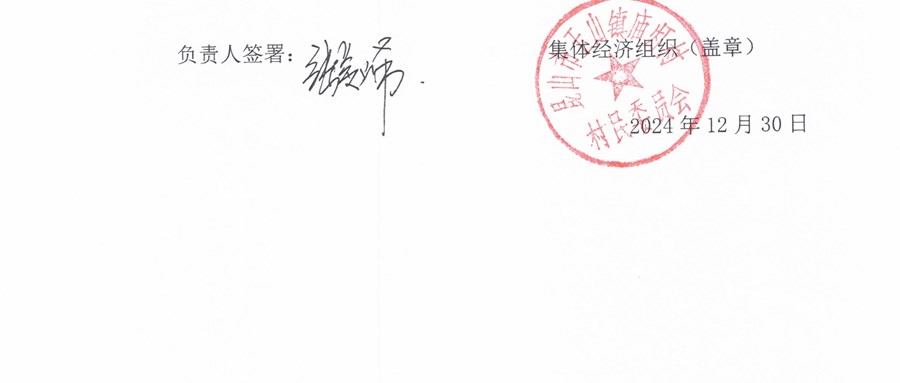 负责人签署：
集体经济组织（盖章）
村民委员会
2024 年 12 月 30 日